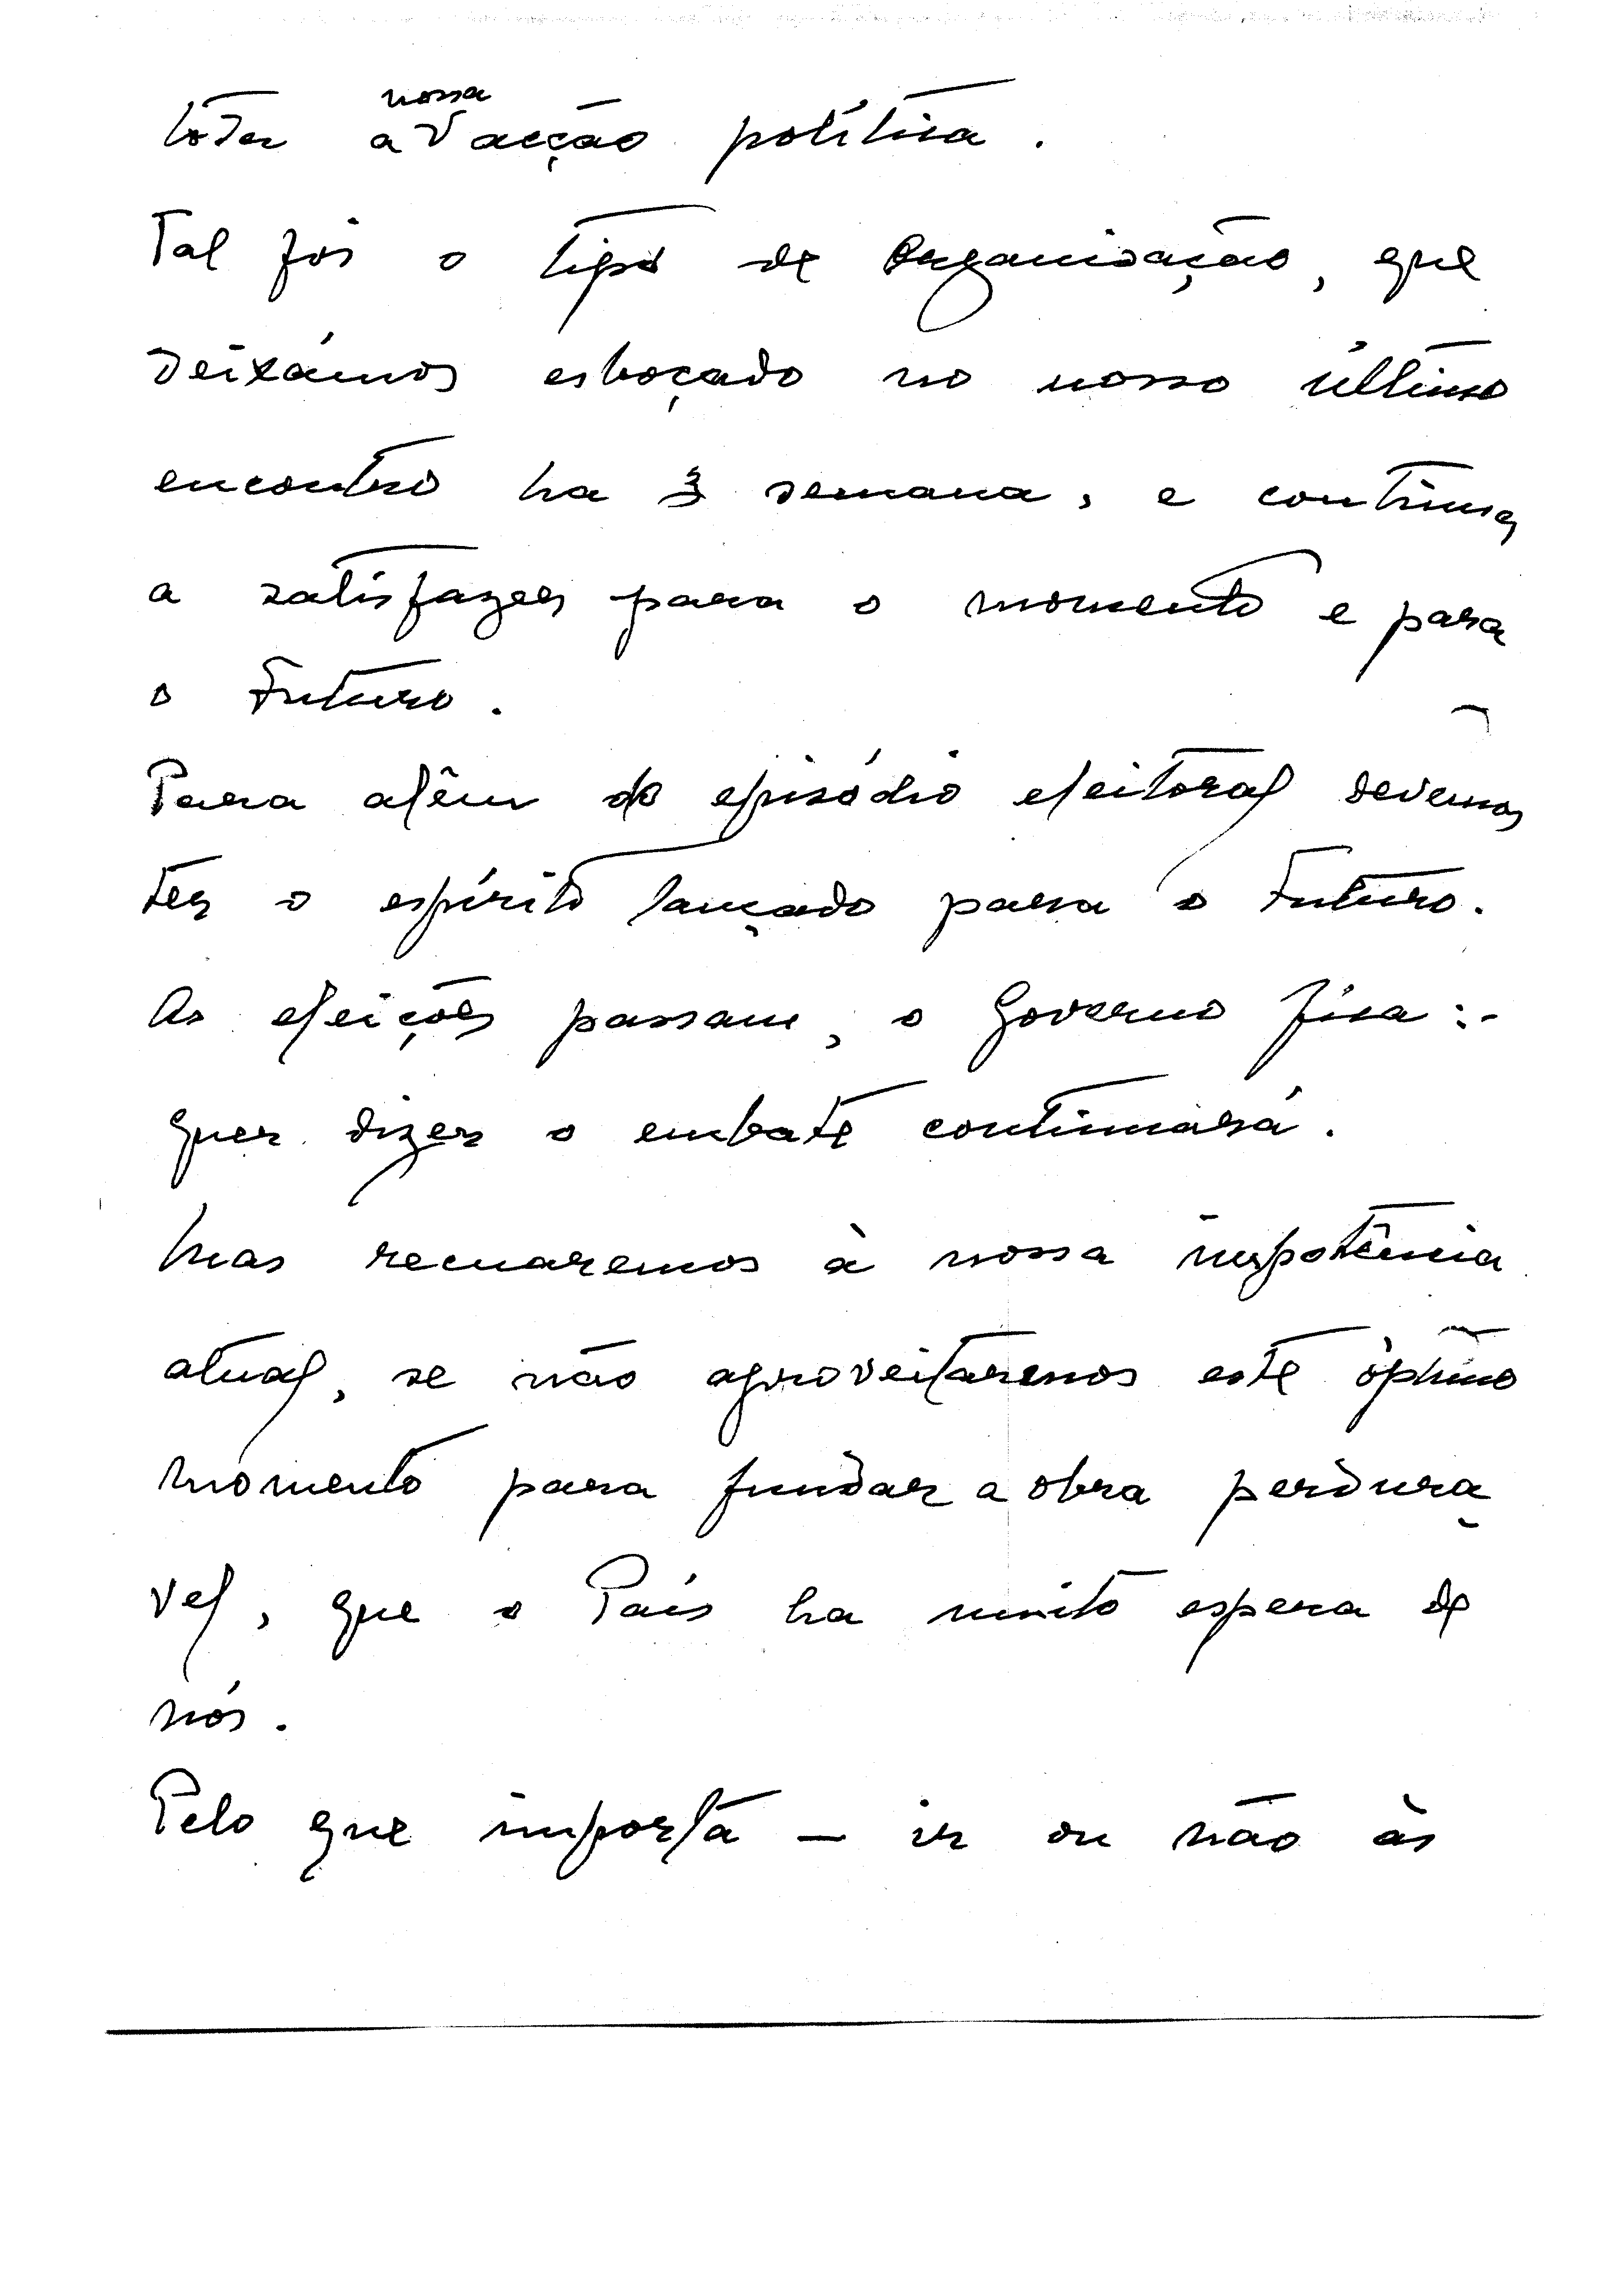 toda a nossa acção política.
Tal foi o tipo de organisação, que
deixámos esboçado no nosso último
encontro ha 3 semana, e continua
a satisfazer para o momento e para
o Futuro.
Para alêm do episódio eleitoral devemos
ter o espírito lançado para o Futuro.
As eleições passam, o Governo fica:-
quer dizer o embate continuará.
Mas recuaremos à nossa impotência
atual, se não aproveitaremos este óptimo
momento para fundar a obra perdura
vel, que o País ha muito espera de
nós.
Pelo que importa — ir ou não às